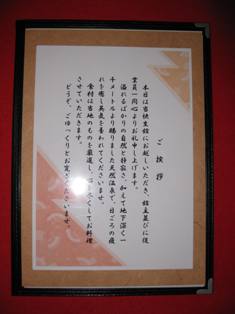 ご挨拶
本日は当快生館にお越しいただき、館主並びに従
業員一同心よりお礼申し上げます。
溢れるばかりの自然と静寂さ、加えて地下深く一
千メートルより湧りました天然温泉で、日ごろの疲
れを癒し英気を養われてくださいませ。
食材は当地のものを厳選し、心尽くしてお料理
させていただきます。
どうぞ、ごゆっくりとお寛ぎくださいませ。